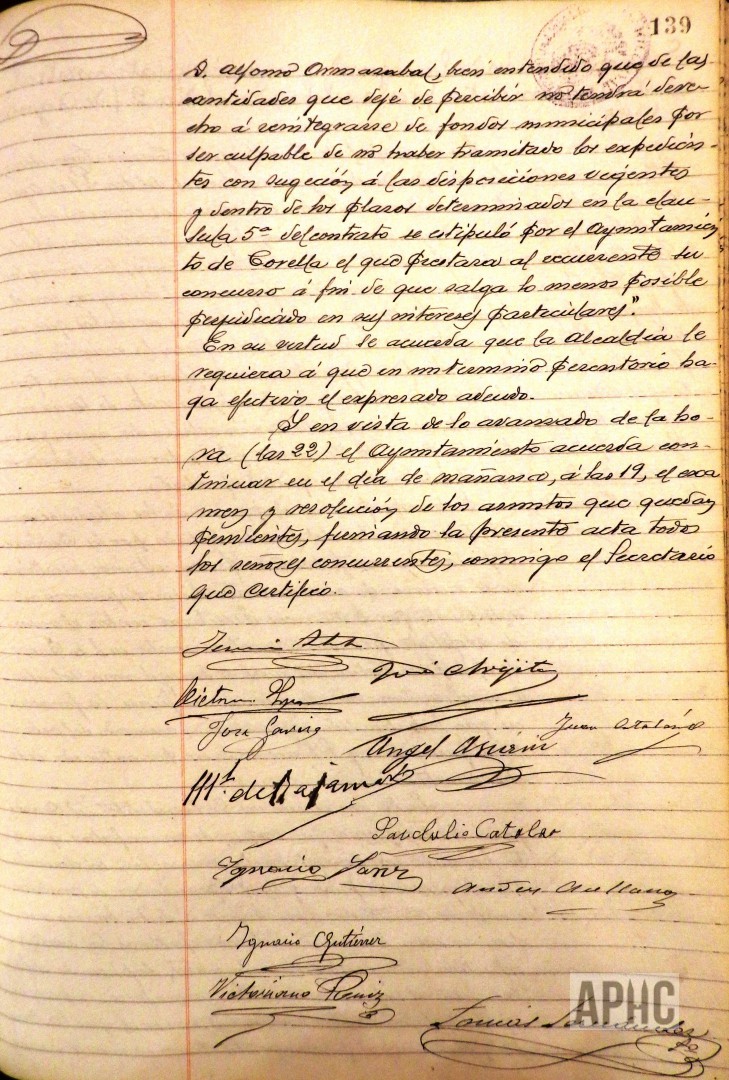 139
D. Alfonso Ormazabal, bien entendido que de las
cantidades que dejé de percibir no tendrá dere-
cho á reintegrarse de fondos municipales por
ser culpable de no haber tramitado los expedien-
tes con sugeción á las disposiciones vigentes
y dentro de los plazos determinados en la clau-
sula 5ª del contrato se estipuló por el Ayuntamien-
to de Corella el que prestara al recurrente su
concurso á fin de que salga lo menos posible
perjudicado en sus intereses particulares."
En su virtud se acuerda que la Alcaldía le
requiera á que en un termino perentorio ha-
ga efectivo el expresado adeudo.
Y en vista de lo avanzado de la ho-
ra (las 22) el Ayuntamiento acuerda con-
tinuar en el dia de mañana, á las 19, el exa-
men y resolución de los asuntos que quedan
pendientes, firmando la presente acta todos
los señores concurrentes, conmigo el Secretario
que certifico.
José
José
Angel
Juan Catalán
Ml. de
Sandalio Catalan
Ignacio
Arellano
Ignacio Gutiérrez
Victoriano Ruiz
APHC
Tomás